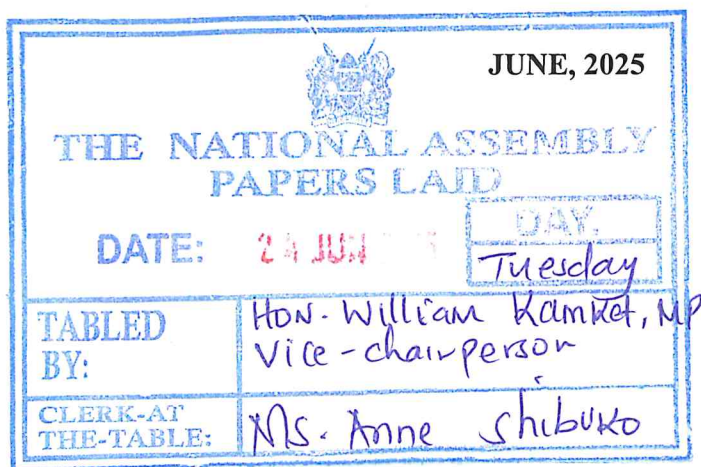 JUNE, 2025
THE NATIONAL ASSEMBLY
PAPERS LAID
DATE: 24 JUN
DAY.
Tuesday
TABLED BY:
HON. William Kamket, MP
Vice-chairperson
CLERK-AT THE-TABLE:
Ms. Anne Shibuko